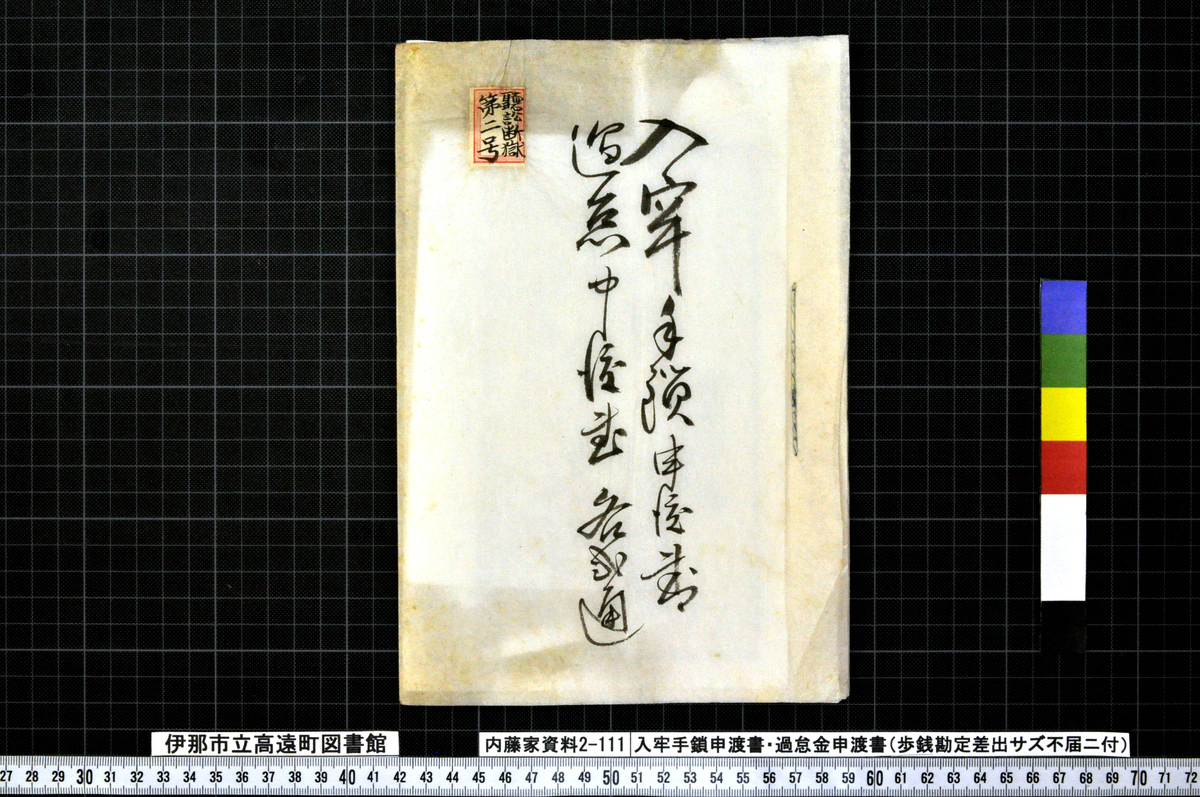 入牢手鎖申渡書
過怠申渡書 各弐通
聽訟断獄
第二号
伊那市立高遠町図書館
内藤家資料2-111
入牢手鎖申渡書・過怠金申渡書(歩銭勘定差出サズ不届ニ付)
27 28 29 30 31 32 33 34 35 36 37 38 39 40 41 42 43 44 45 46 47 48 49 50 51 52 53 54 55 56 57 58 59 60 61 62 63 64 65 66 67 68 69 70 71 72